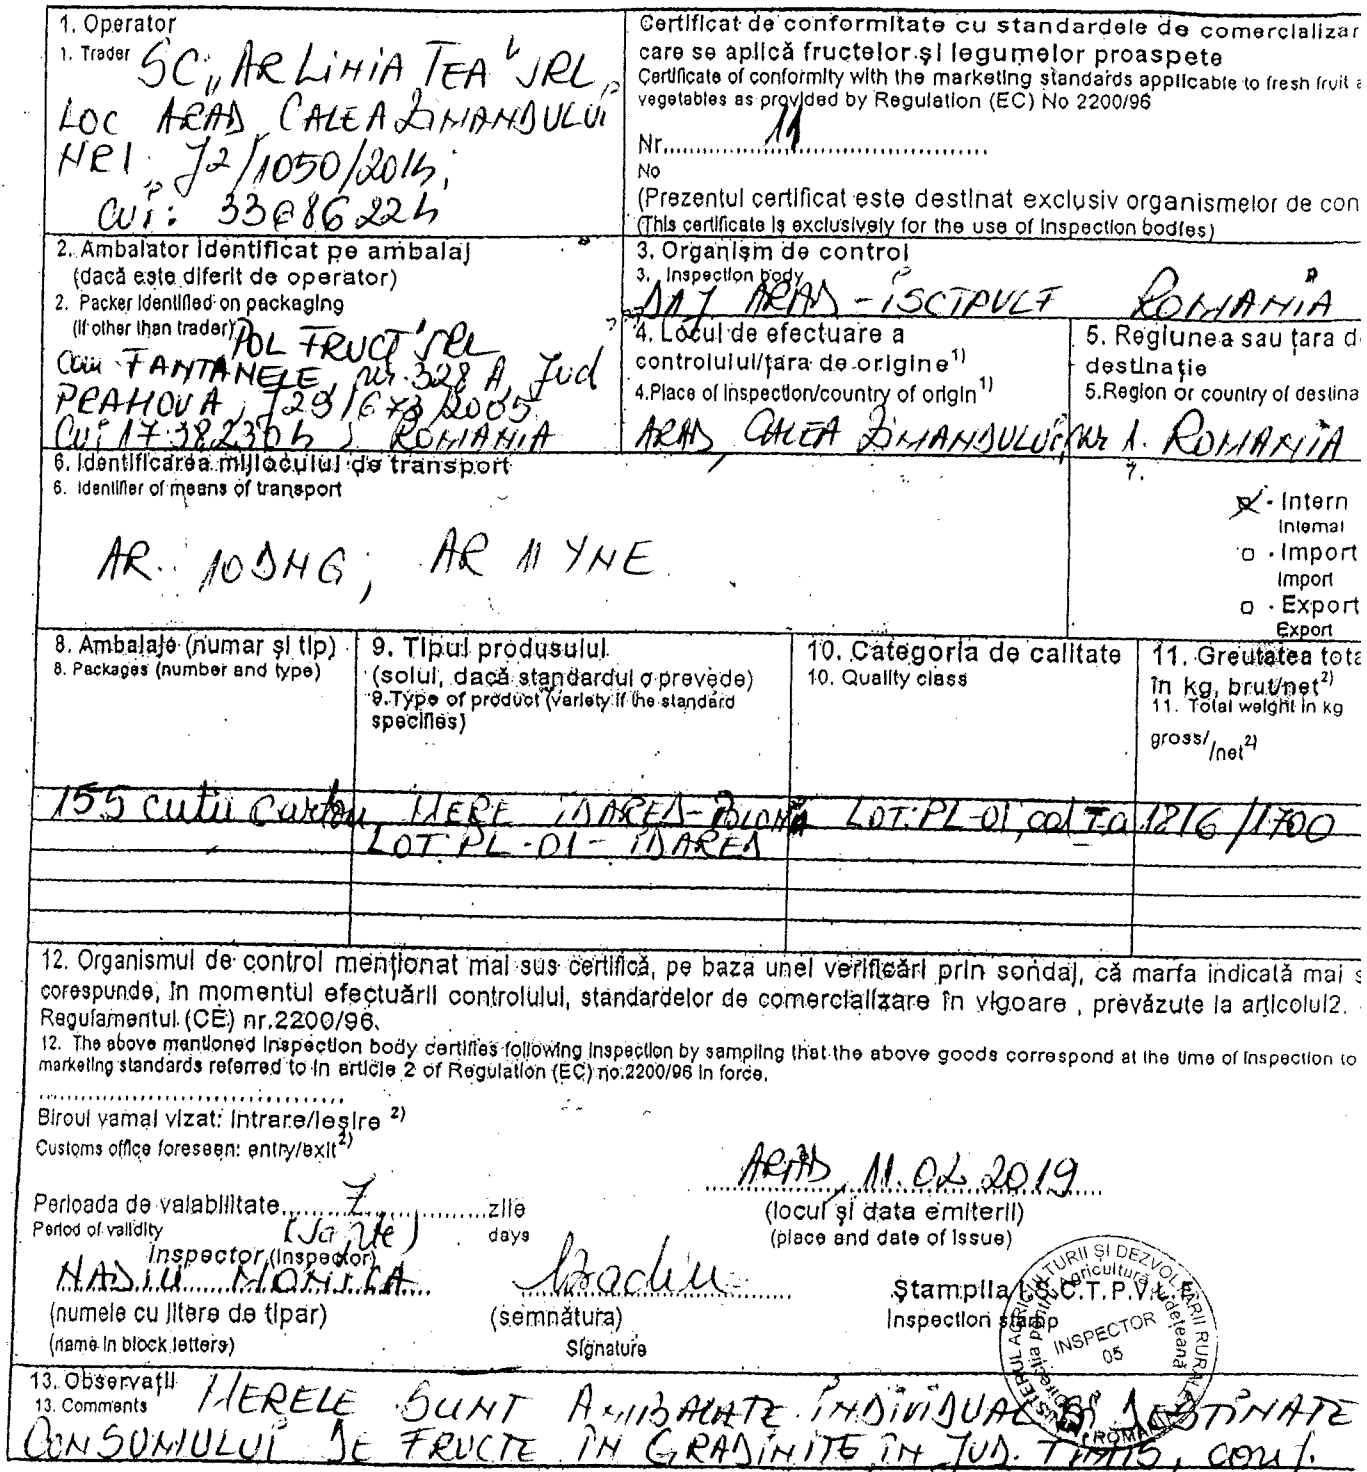 1. Operator
1. Trader SC „AR LINIA TEA" SRL,
LOC ARAD, CALEA ZIMANDULUI
NR1, J2/1050/2014;
CUI:
Certificat de conformitate cu standardele de comercializar
care se aplică fructelor și legumelor proaspete
Certificate of conformity with the marketing standards applicable to fresh fruit a
vegetables as provided by Regulation (EC) No 2200/96
Nr. 11
No
(Prezentul certificat este destinat exclusiv organismelor de con
(This certificate is exclusively for the use of inspection bodies)
2. Ambalator identificat pe ambalaj
(dacă este diferit de operator)
2. Packer identified on packaging
(if other than trader) POL FRUCT SRL
Com FANTANELE, nr. 328 A, Jud
PRAHOVA, J29/673/2005
CUI 17382304, ROMANIA
3. Organism de control
3. Inspection body
DAJ ARAD - ISCTPVLF ROMANIA
4. Locul de efectuare a
controlului/țara de origine 1)
4.Place of inspection/country of origin 1)
ARAD, CALEA ZIMANDULUI, nr 1.
5. Regiunea sau țara d
destinație
5.Region or country of destina
ROMANIA
6. Identificarea mijlocului de transport
6. Identifier of means of transport
AR 10 DHG; AR 11 YNE
7.
- Intern
Internal
- Import
Import
- Export
Export
8. Ambalaje (numar și tip)
8. Packages (number and type)
9. Tipul produsului
(soiul, dacă standardul o prevede)
9.Type of product (variety if the standard
specifies)
10. Categoria de calitate
10. Quality class
11. Greutatea tota
în kg, brut/net 2)
11. Total weight in kg
gross/ /net 2)
155 cutii carton MERE IDARED-POLONIA LOT:PL-01, cal I a 1816/1700
LOT PL-01- IDARED
12. Organismul de control menționat mai sus certifică, pe baza unei verificări prin sondaj, că marfa indicată mai s
corespunde, în momentul efectuării controlului, standardelor de comercializare în vigoare , prevăzute la articolul2.
Regulamentul (CE) nr.2200/96.
12. The above mentioned inspection body certifies following inspection by sampling that the above goods correspond at the time of inspection to
marketing standards referred to in article 2 of Regulation (EC) no.2200/96 in force.
Biroul vamal vizat: intrare/ieșire 2)
Customs office foreseen: entry/exit 2)
ARAD, 11.02.2019
(locul și data emiterii)
(place and date of issue)
Perioada de valabilitate 7 zile
Period of validity (șapte) days
Inspector (Inspector)
NADIU MONICA
(numele cu litere de tipar)
(name in block letters)
(semnătura)
Signature
Ștampila I.S.C.T.P.V.L.F.
Inspection stamp
INSPECTOR
05
ROMANIA
13. Observații
13. Comments MERELE SUNT AMBALATE INDIVIDUAL ȘI DESTINATE
CONSUMULUI DE FRUCTE ÎN GRĂDINIȚE ÎN JUD. TIMIȘ, conf.